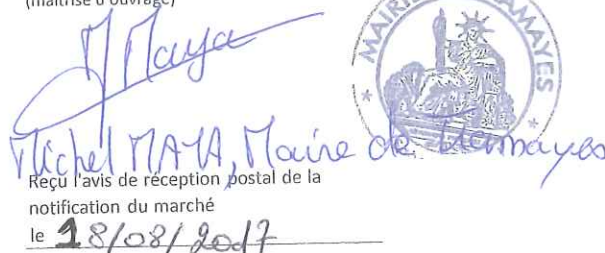 (maîtrise d'ouvrage)
M Maya
MAIRIE
Michel MAYA, Maire de Tramayes
Reçu l'avis de réception postal de la
notification du marché
le 18/08/2017